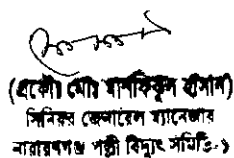 (প্রকৌঃ মোঃ মাশফিকুল হাসান)
সিনিয়র জেনারেল ম্যানেজার
নারায়ণগঞ্জ পল্লী বিদ্যুৎ সমিতি-১